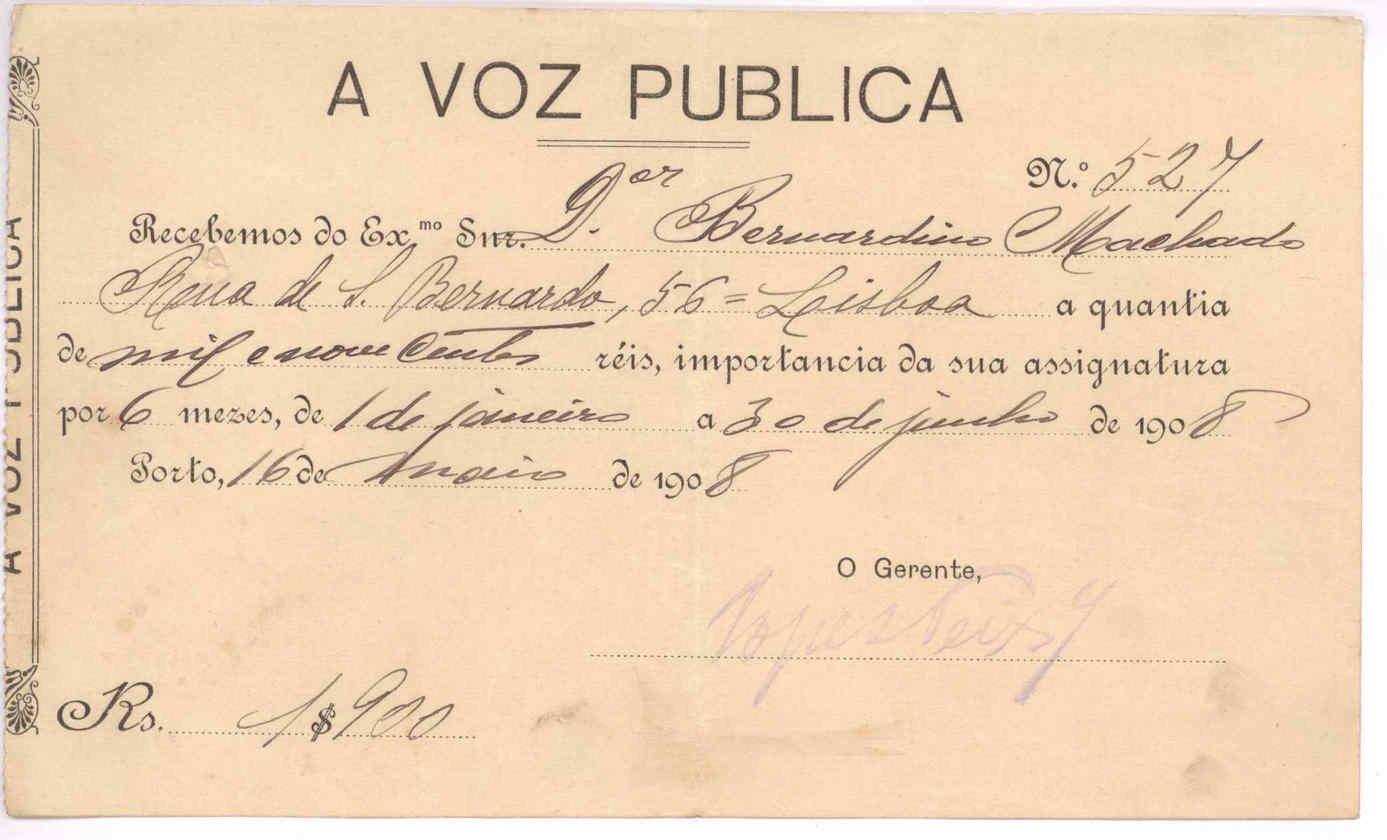 A VOZ PUBLICA
N.º 527
Recebemos do Exmo Snr. Dor Bernardino Machado
Rua de S. Bernardo, 56 = Lisboa a quantia
de mil e nove centos réis, importancia da sua assignatura
por 6 mezes, de 1 de janeiro a 30 de junho de 1908
Porto, 16 de maio de 1908
O Gerente,
Rs. 1$900
A VOZ PUBLICA